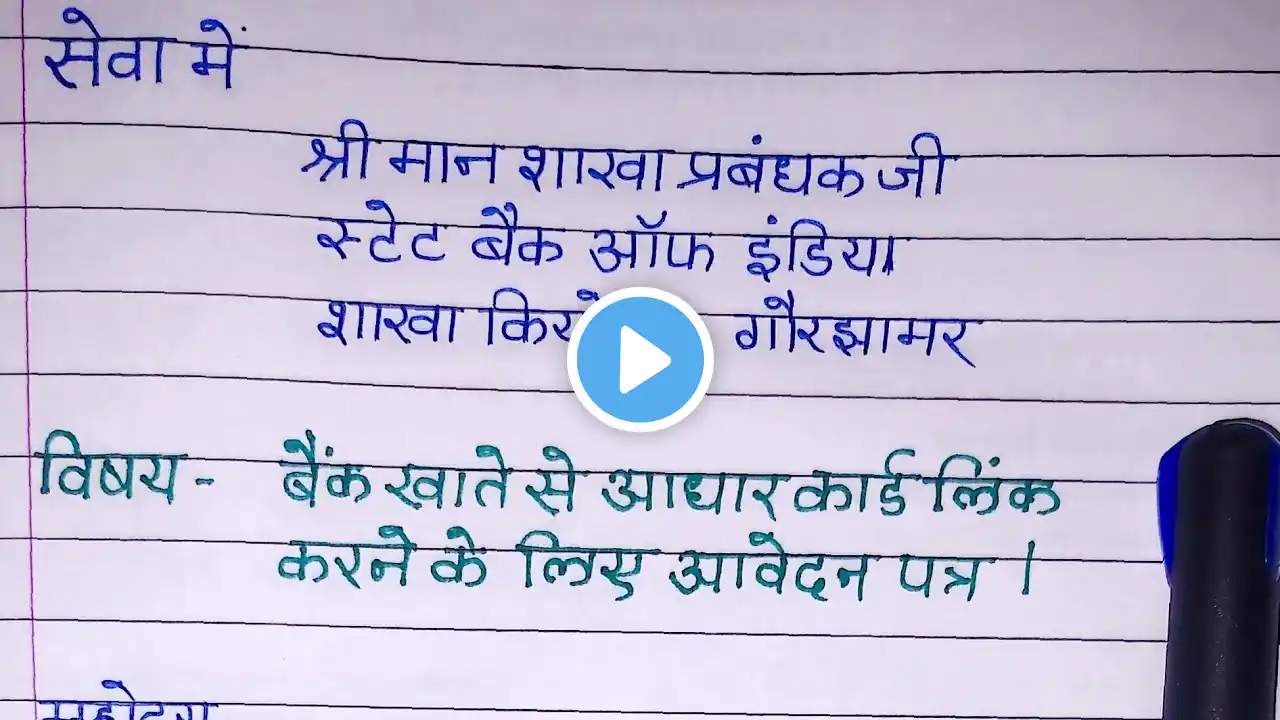 सेवा में
श्री मान शाखा प्रबंधक जी
स्टेट बैक ऑफ इंडिया
शाखा गौरझामर
विषय - बैंक खाते से आधार कार्ड लिंक
करने के लिए आवेदन पत्र ।